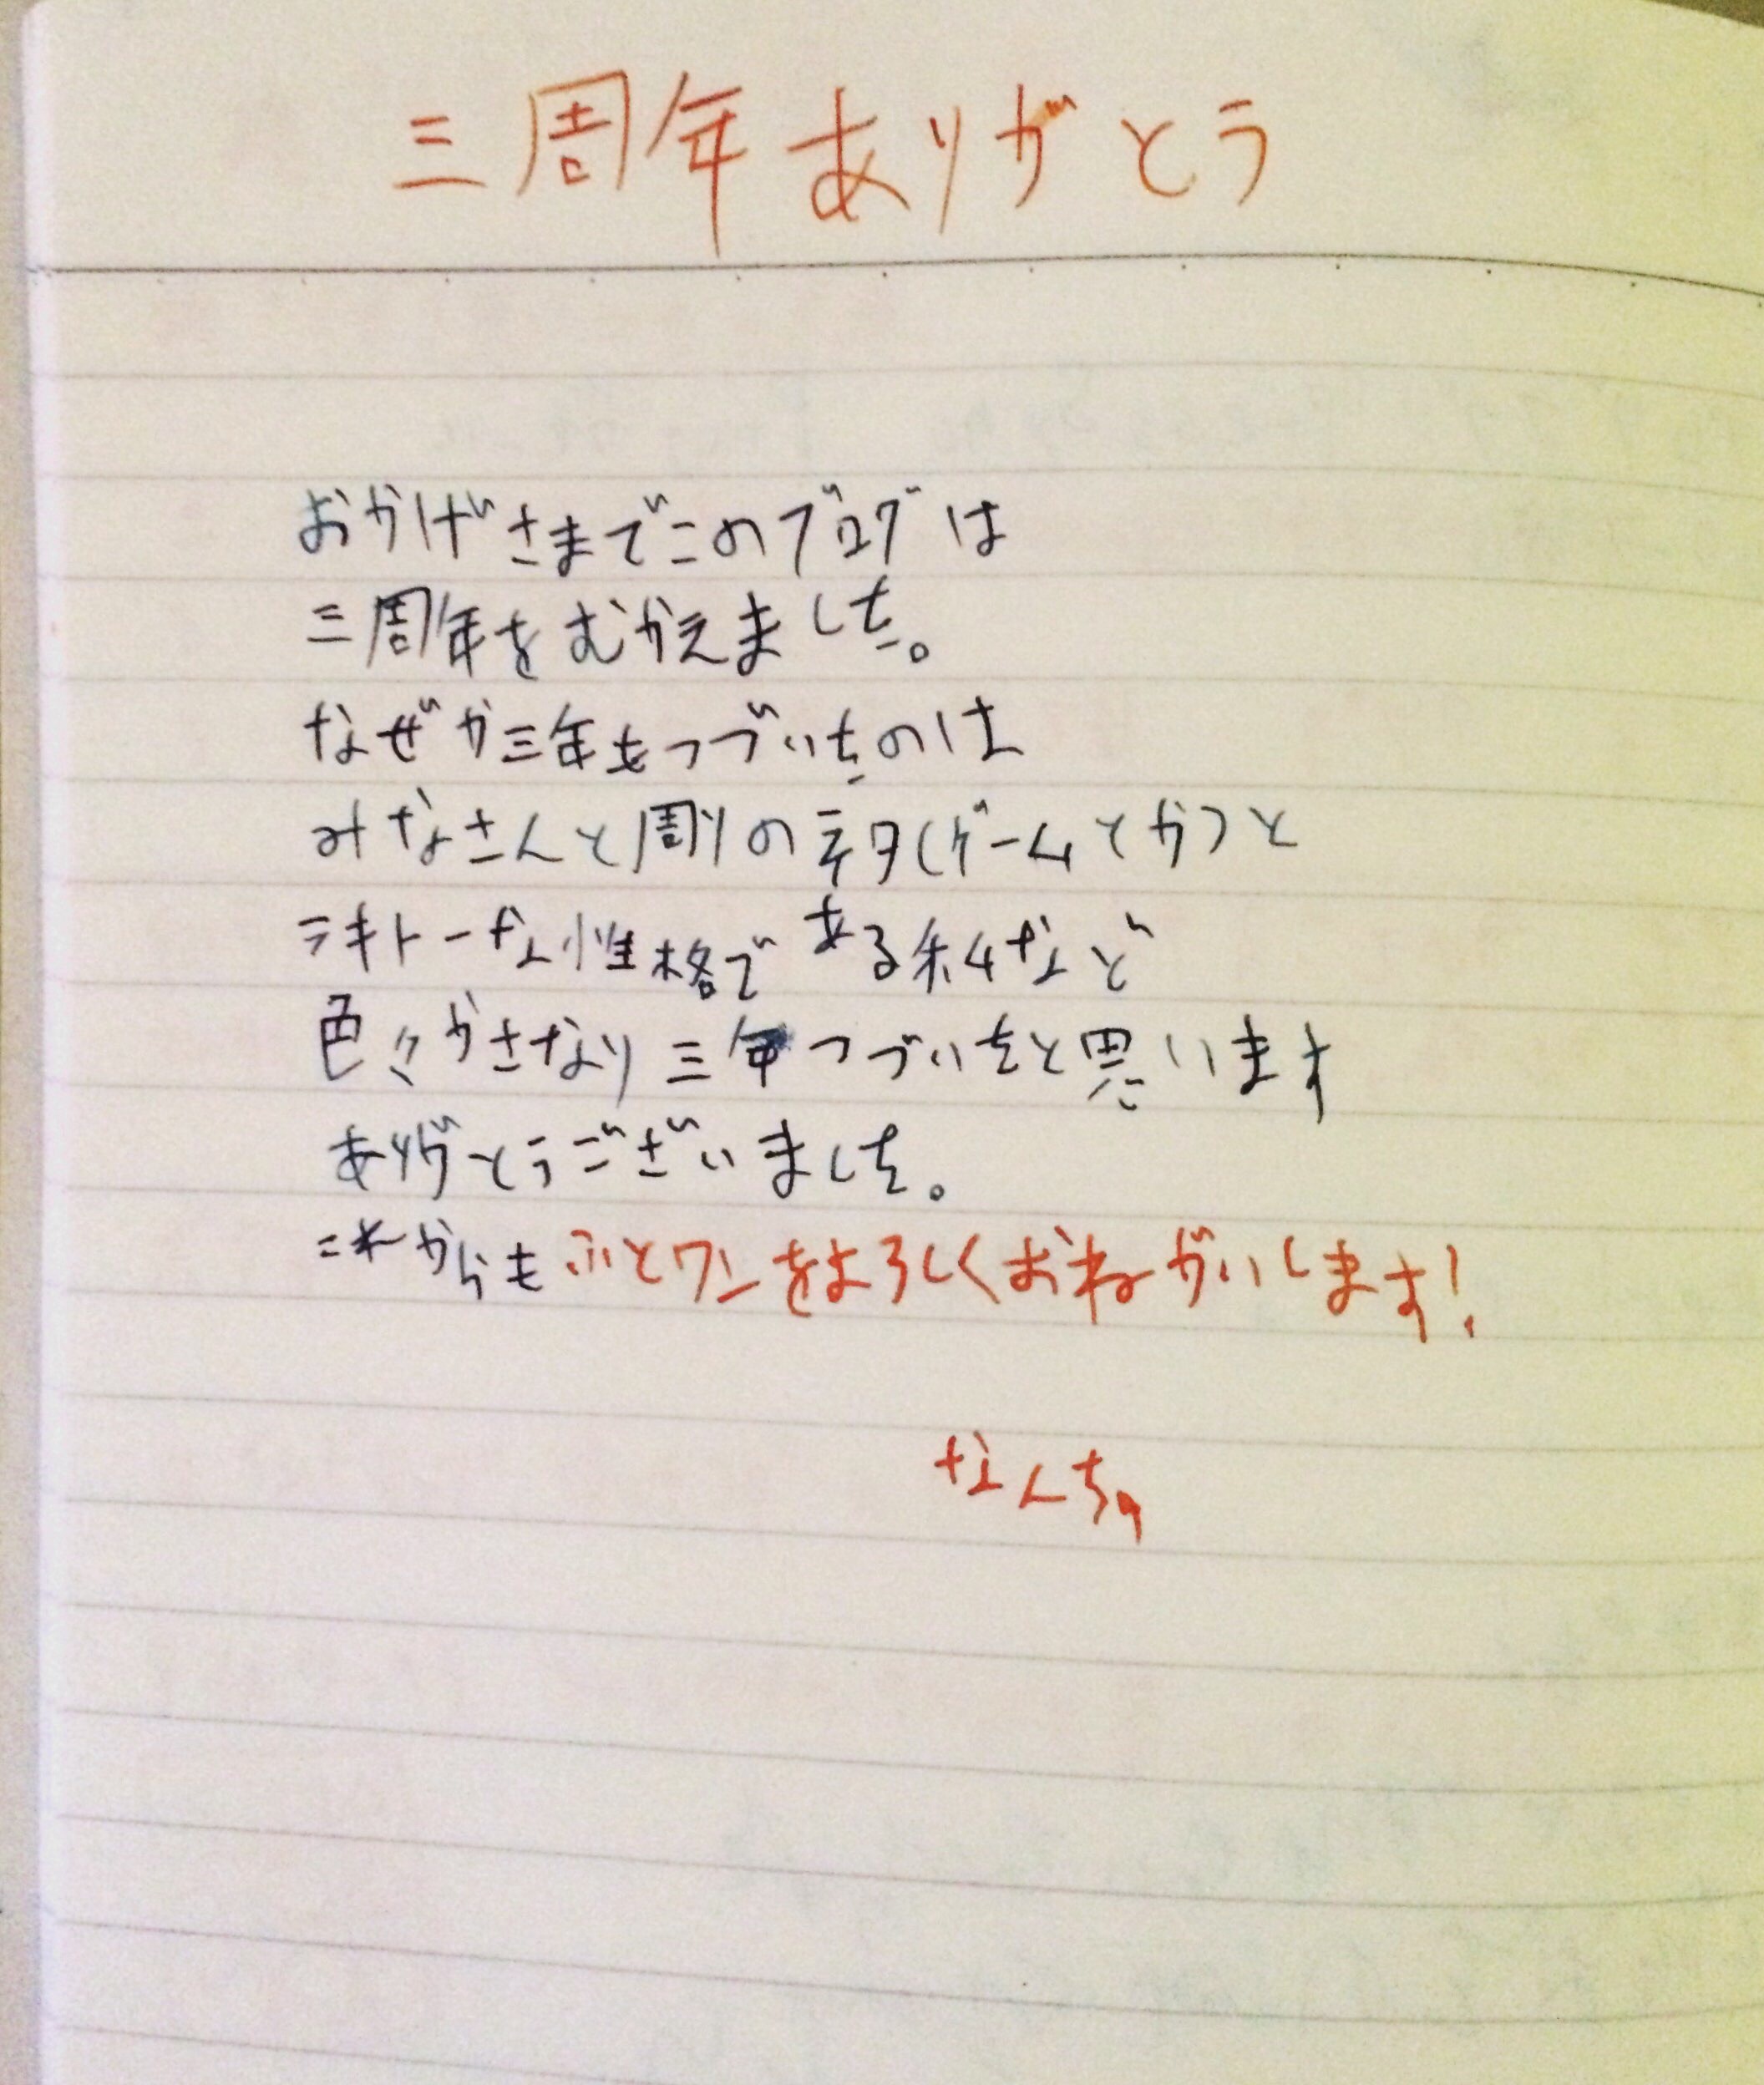 三周年ありがとう
おかげさまでこのブログは
三周年をむかえました。
なぜか三年もつづいたのは
みなさんと周りのネタ(ゲームとか)と
テキトーな性格である私など
色々かさなり三年つづいたと思います
ありがとうございました。
これからもふとワンをよろしくおねがいします!
なんちゃ